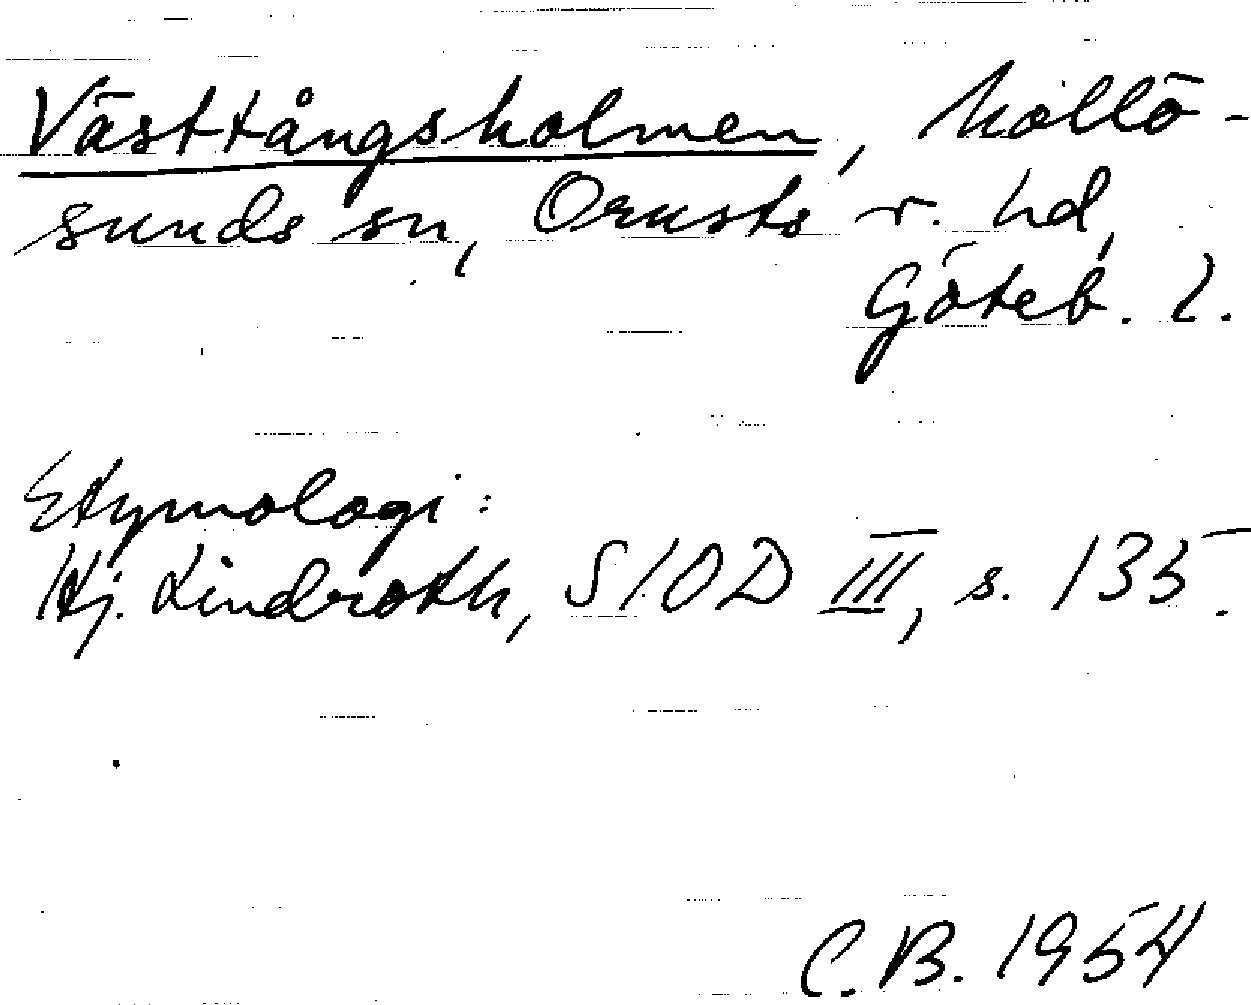 Västtångsholmen, Mollö-
sunds sn, Orusts v. hd,
Göteb. l.
Etymologi:
Hj. Lindroth, SIOD III, s. 135.
C.B. 1954